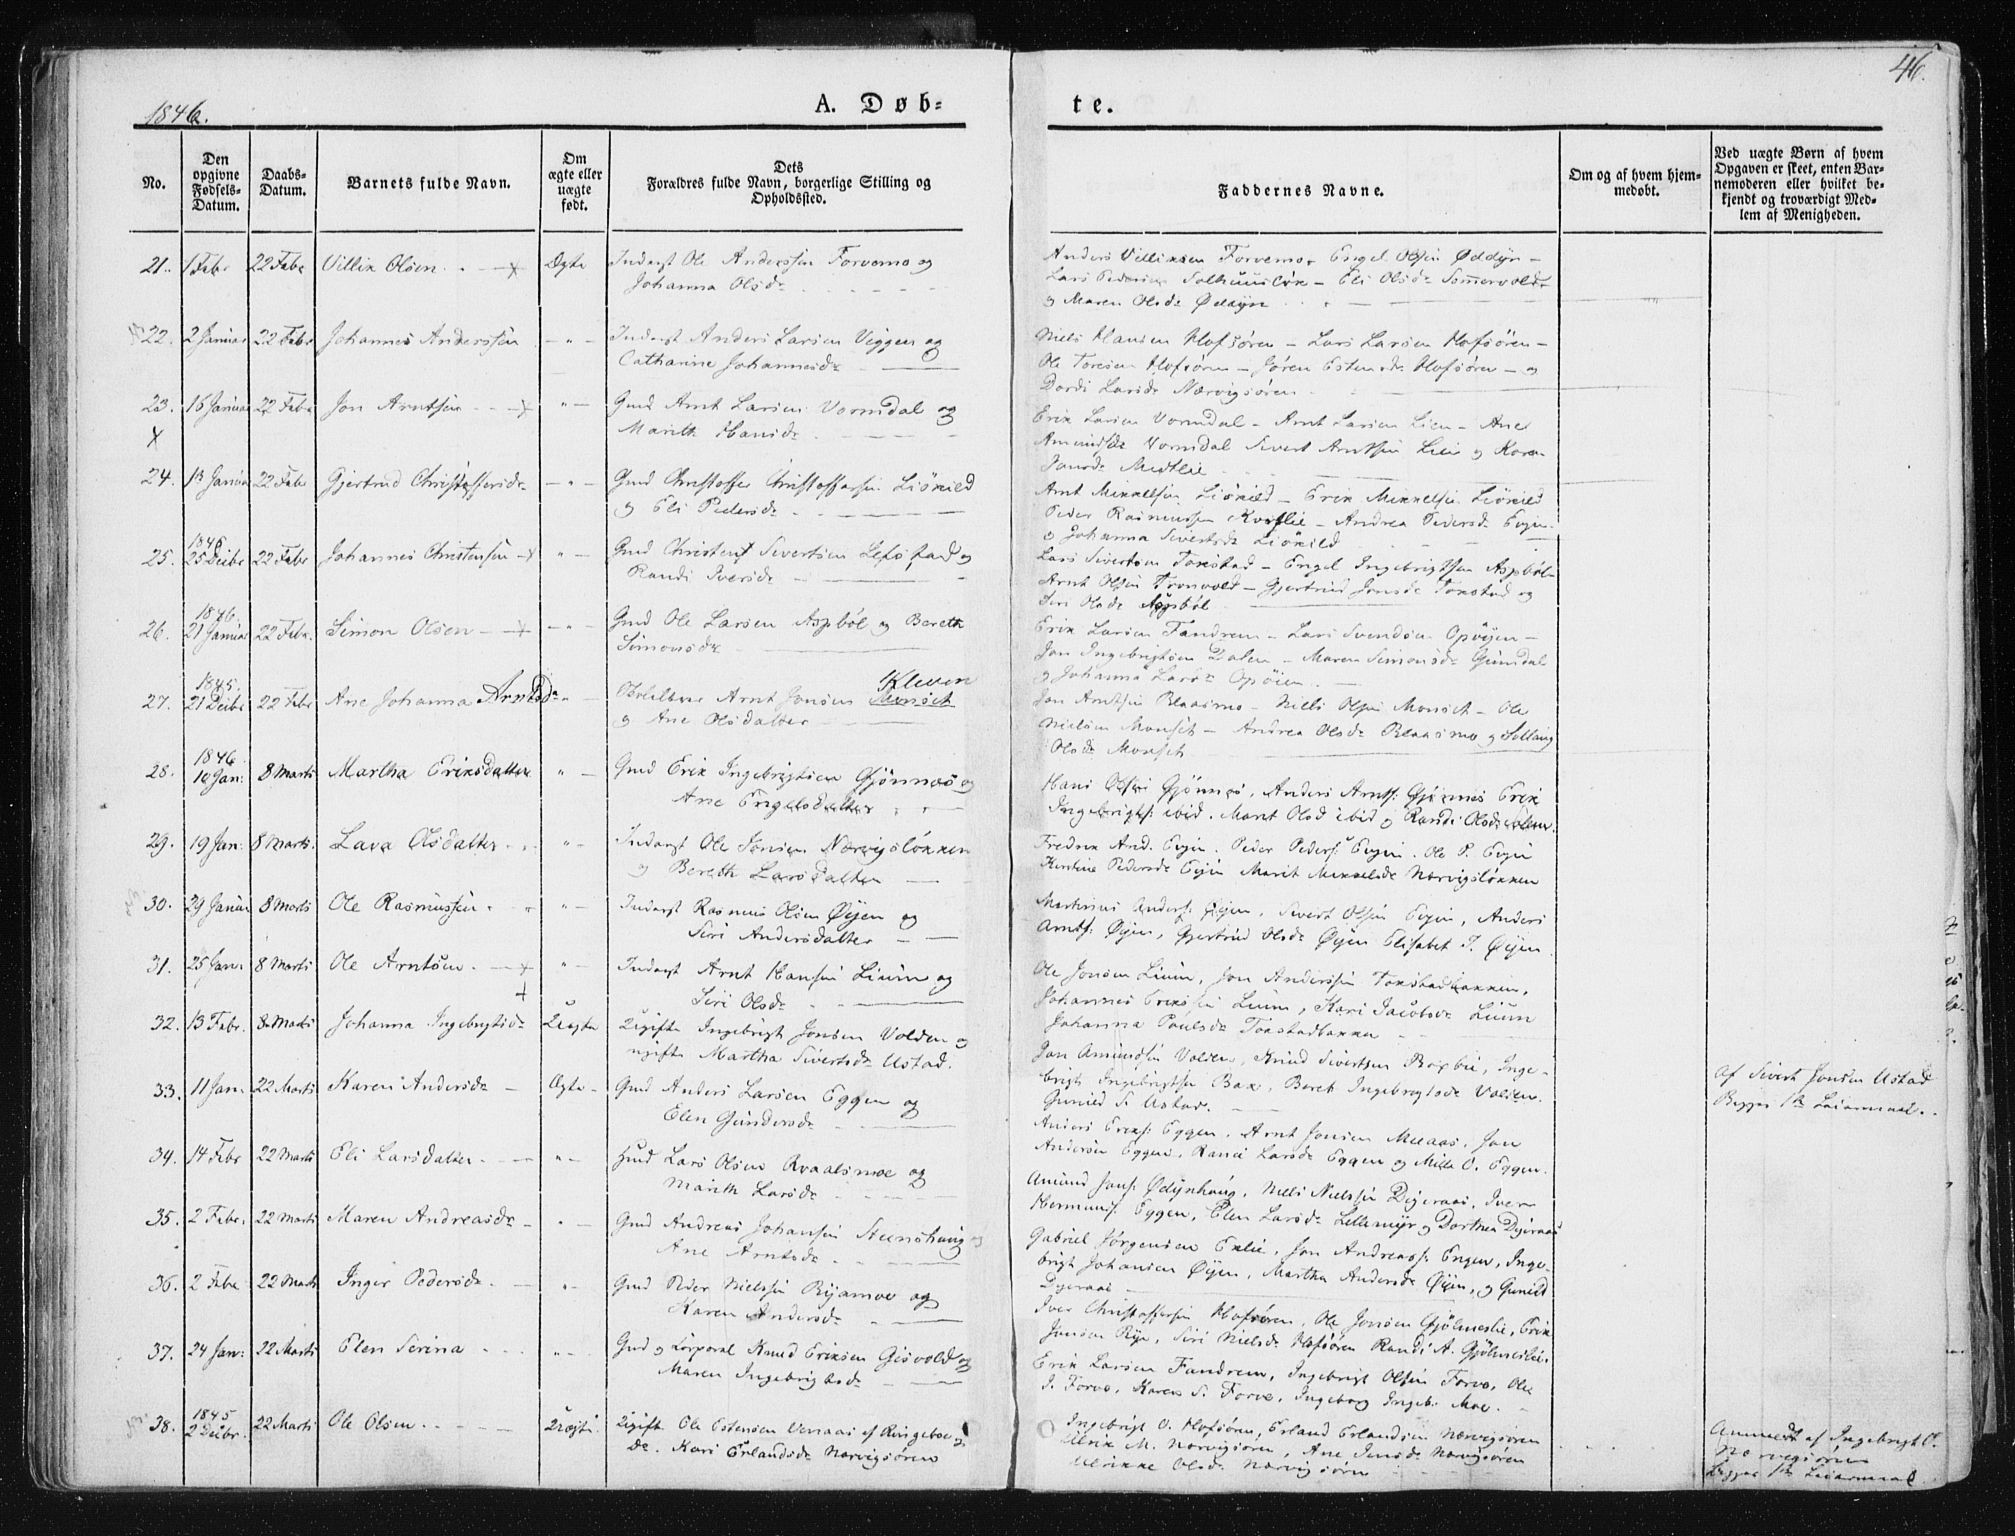 46.
1846.
A. Døb-
te.
No.
Den opgivne Fødsels-Datum.
Daabs-Datum.
Barnets fulde Navn.
Om ægte eller uægte født.
Dets Forældres fulde Navn, borgerlige Stilling og Opholdssted.
Faddernes Navne.
Om og af hvem hjemmedøbt.
Ved uægte Børn af hvem Opgaven er skeet, enten Barnemoderen eller hvilket bekjendt og troværdigt Medlem af Menigheden.
21. 1 Febr 22 Febr Villik Olsen Ægte Inderst Ole Anderssen Forvemo og
Johanna Olsdr
Anders Villiksen Forvemo - Engel Olsen Øddyn -
Lars Pedersen - Eli Olsdr Somervold
og Maren Olsdr Ødøyn
22. 2 Januar 22 Febr Johannes Anderssen - " - Inderst Anders Larsen Viggen og
Catharine Johannesdr
Niels Hansen Hofsøren - Lars Larsen Hofsøren -
Ole Toresen Hofsøren - Jøren Estensdr Hofsøren - og
Dordi Larsdr Nærvigsøren
23. 16 Januar 22 Febr Jon Arntsen " - Gmd Arnt Larsen Vormdal og
Marith Hansdr
Erik Larsen Vormdal - Arnt Larsen Lien - Ane
Amundsdr Vormdal Sivert Arntsen Lien og Karen
Jonsdr Midtlie
24. 13 Januar 22 Febr Gjertrud Christoffersdr - " - Gmd Christoffer Christoffersen Liøkild
og Eli Pedersdr
Arnt Mikkelsen Liøkild - Erik Mikkelsen Liøkild
Peder Rasmussen - Andrea Pedersdr Evjen
og Johanna Sivertsdr Liøkild
25. 1845 25 Decbr 22 Febr Johannes Christensen " - Gmd Christen Sivertsen Lefstad og
Randi Iversdr
Lars Sivertsen Tokstad - Engel Ingebrigtsen Aspbøl -
Arnt Olsen Tronvold - Gjertrud Jonsdr Tokstad og
Siri Olsdr Aspbøl
26. 1846. 21 Januar 22 Febr. Simon Olsen - " - Gmd Ole Larsen Aspbøl og Bereth
Simonsdr
Erik Larsen Fandrem - Lars Svendsen Opøien -
Jon Ingebrigtsen Dalen - Maren Simonsdr Gumdal
og Johanna Larsdr Opøien
27. 1845. 21 Decbr 22 Febr Ane Johanna Arntsdr " - Arnt Jonsen Monset Kleven
og Ane Olsdatter
Jon Arntsen Blaasmo - Niels Olsen Monset - Ole
Nielsen Monset - Andrea Olsdr Blaasmo og Sollaug
Olsdr Monset
28. 1846 10 Jan: 8 Marts Martha Eriksdatter " - Gmd Erik Ingebrigtsen Gjønnes og
Ane Engelsdatter
Hans Olsen Gjønnes, Anders Arnts: Gjønnes Erik
Ingebrigts: ibid. Marit Olsd ibid og Randi Olsdr
29. 19 Jan: 8 Marts. Lava Olsdatter " - Inderst Ole Jonsen Nærvigsløkken
og Bereth Larsdatter
Fredrik And. Evjen. Peder Peders: Evjen. Ole P. Evjen
Kirstine Pedersdr Evjen Marit Mikkelsdr Nærvigsløkken
30. 29 Januar 8 Marts Ole Rasmussen " - Inderst Rasmus Olsen Øyen og
Siri Andersdatter
Martinus Anders: Øyen, Sivert Olsen Evjen, Anders
Arnts: Øyen, Gjertrud Olsdr Øyen Elisabet J. Øyen
31. 25 Jan: 8 Marts Ole Arntsen " - Inderst Arnt Hansen Lium og
Siri Olsdr
Ole Jonsen Lium, Jon Anderssen Tokstadbakken,
Johannes Eriksen Lium, Kari Jacobsdr Lium
Johanna Paulsdr Tokstadbakken
32. 13 Febr. 8 Marts Johanna Ingebrigtsdr Uægte Ugift Ingebrigt Jonsen Volden og
ugift Martha Sivertsdr Ustad.
Jon Amundsen Volden, Knud Sivertsen, Inge-
brigt Ingebrigtsen Bak, Beret Ingebrigtsdr Volden,
Gunild S. Ustad.
Af Sivert Jonsen Ustad
Begges 1ste Leiermaal.
33. 11 Jan: 22 Marts Karen Andersdr Ægte - Gmd Anders Larsen Eggen og
Elen Gundersdr
Anders Eriks: Eggen, Arnt Jonsen Melaas, Jon
Andersen Eggen, Randi Larsdr Eggen og Mille O. Eggen.
34. 14 Febr 22 Marts Eli Larsdatter " - Hmd Lars Olsen Kvaalsmoe og
Marith Larsdr
Amund Jons: Ødynhaug, Niels Nielssen Digeraas, Iver
Hermans: Eggen, Elen Larsdr Lillemyr og Dorthea Digeraas
35. 2 Febr. 22 Marts Maren Andreasdr " - Gmd Andreas Johansen Stenshaug og
Ane Arntsdr
Gabriel Jørgensen Eklie, Jon Andreass: Engen, Inge-
brigt Johansen Øyen, Martha Andersdr Øyen, og Gunild
Digeraas
36. 2 Febr 22 Marts Inger Pedersdr " Gmd Peder Nielsen Ryamoe og
Karen Andersdr
Iver Christoffersen Hofsøren, Ole Jonsen Gjølmeslie, Erik
Jonsen Rye, Siri Nielsdr Hofsøren Randi A. Gjølmeslie.
37. 24 Jan: 22 Marts Elen Serina " - Gmd og Corporal Knud Eriksen Gisvold og
Maren Ingebrigtsdr
Erik Larsen Fandrem, Ingebrigt Olsen Forve, Ole
J. Forve, Karen S. Forve, Ingeborg Ingebr. Moe.
38. 1845 2 Decbr. 22 Marts Ole Olsen Uægte Ugift Ole Estensen Venaas af Ringeboe og
do. Kari Erlandsdr Nærvigsøren
Ingebrigt O. Hofsøren, Erland Erlandsen Nærvigsøren
Ulrik M. Nærvigsøren, Ane Jensdr Nærvigsøren
Ulrikke Olsdr Nærvigsøren
Anmeldt af Ingebrigt O.
Nærvigsøren
Begges 1ste Leiermaal